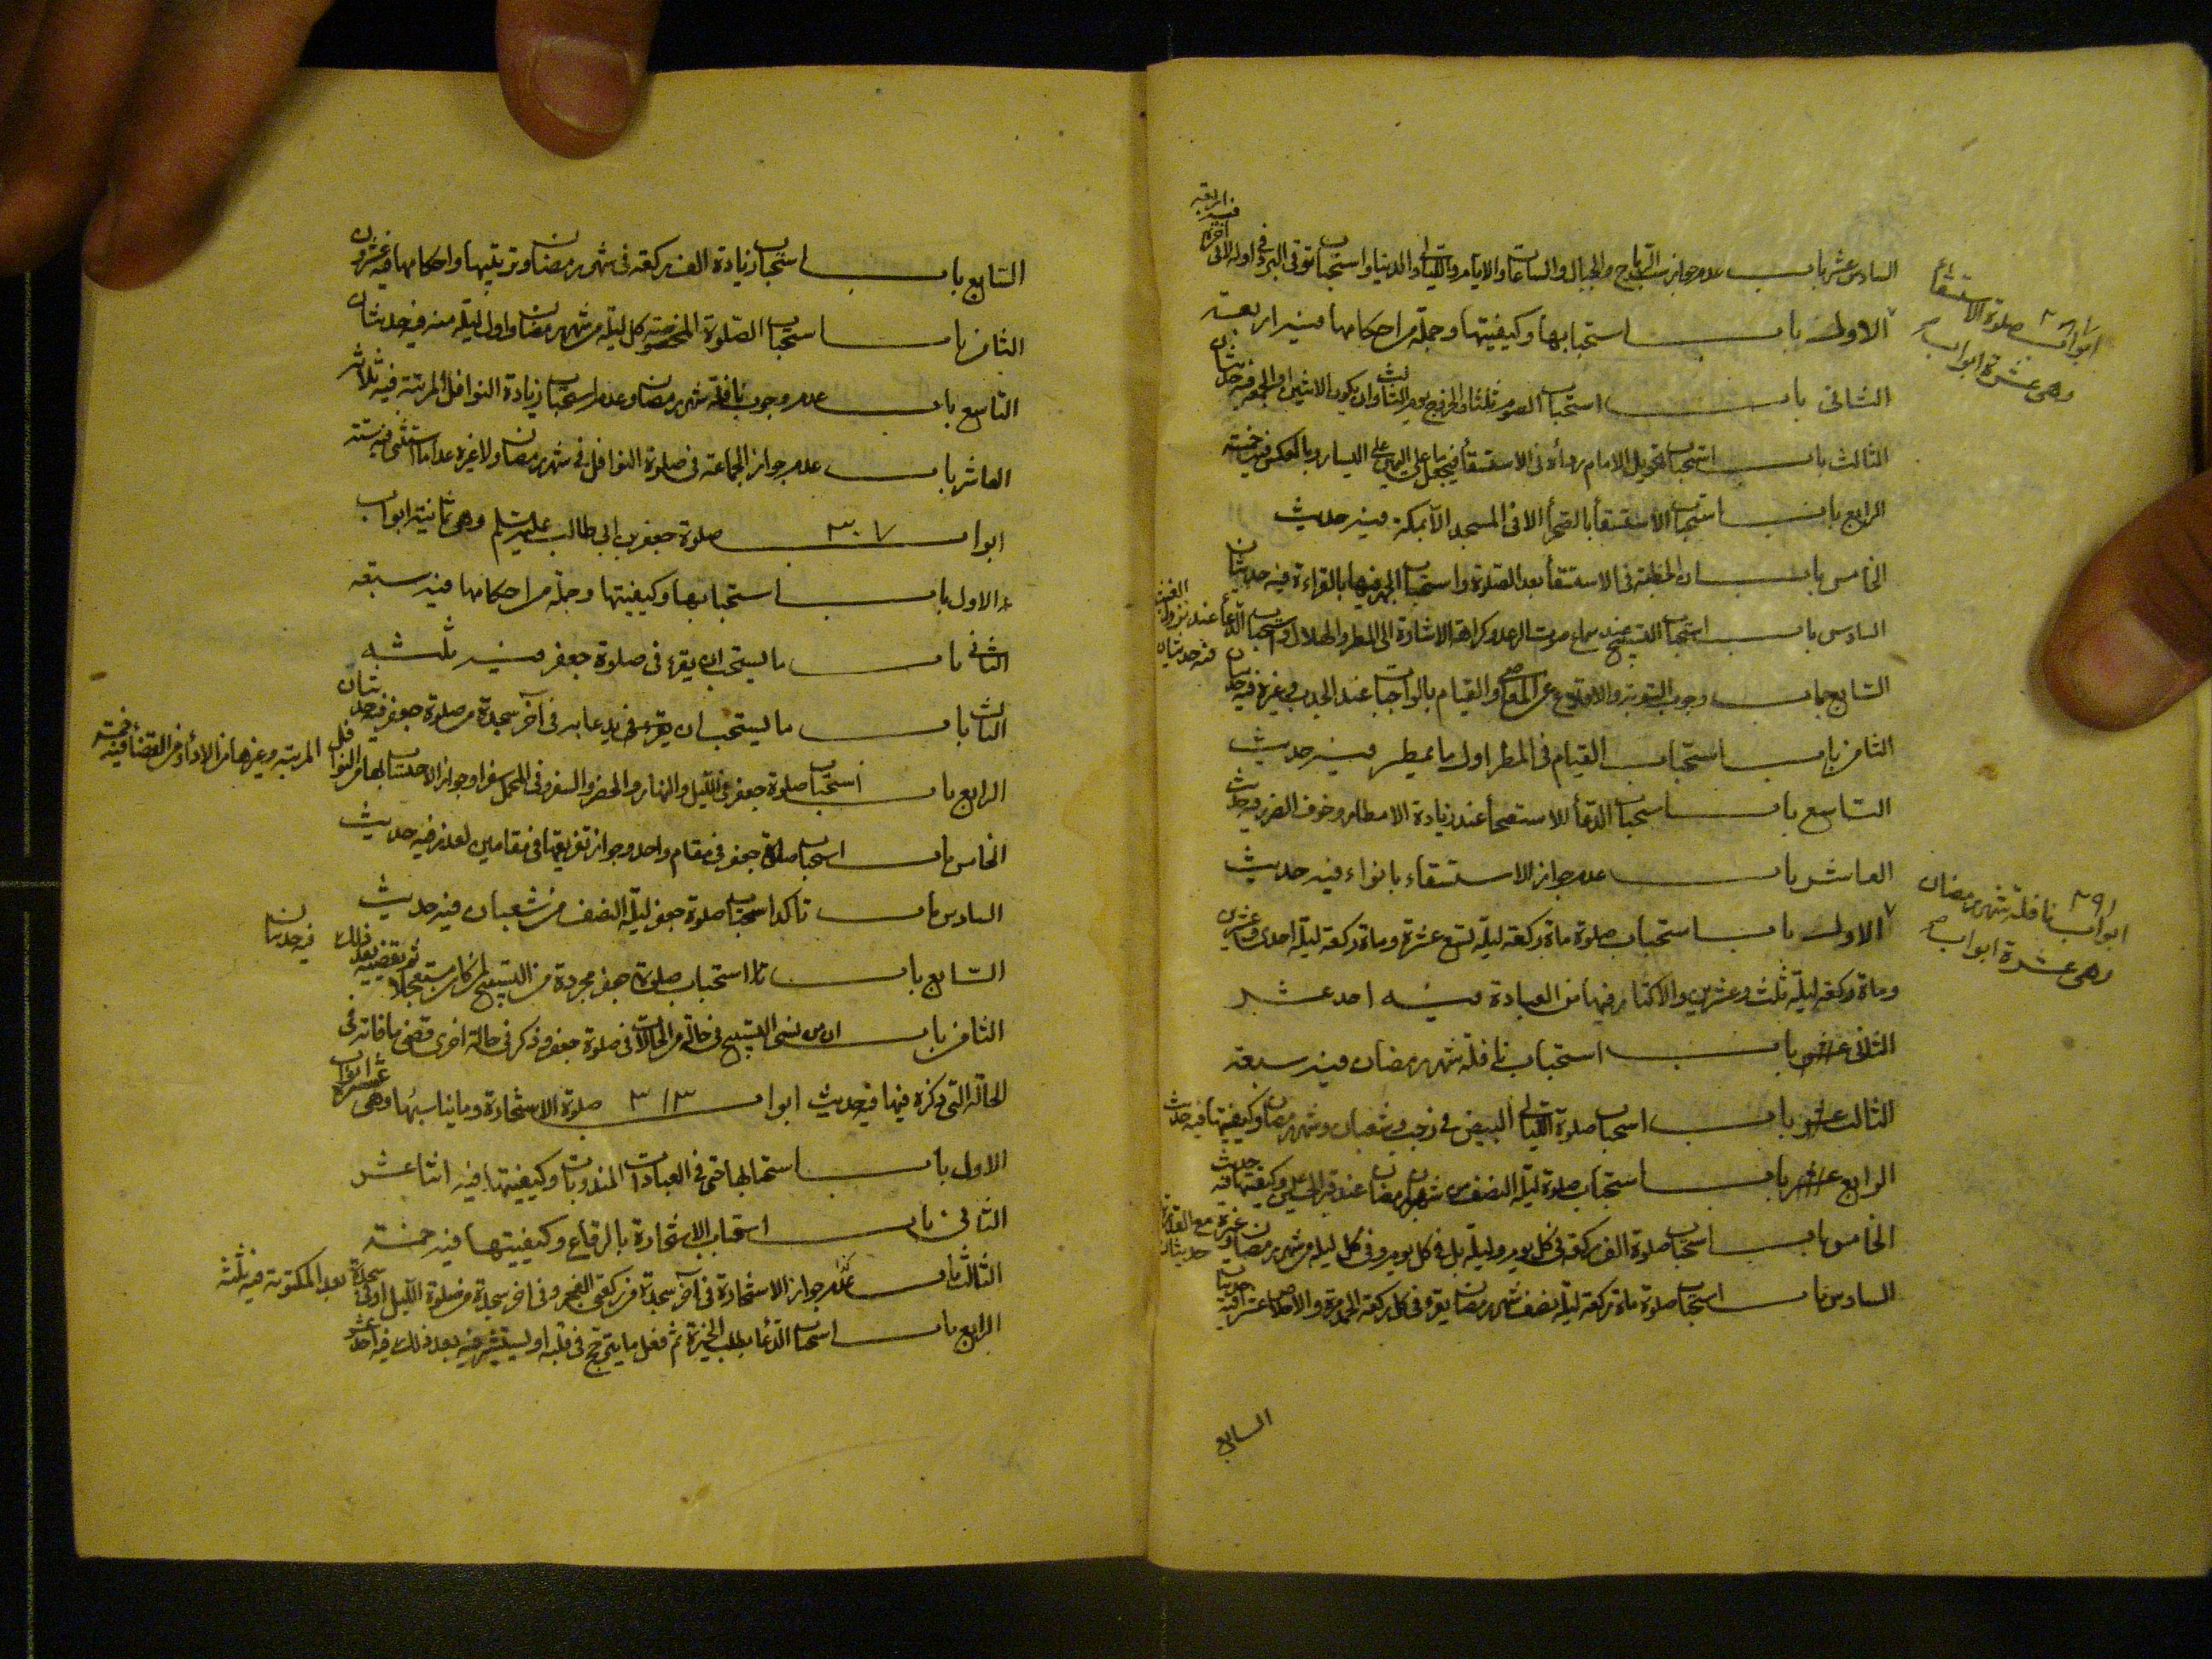 السادس عشر باب عدم جواز سب الرياح والجبال والساعات والايام والليالى والدنيا واستحباب توقى البرد فى اوله لا فى آخره فيه اربعة
ابواب صلوة الاستسقاء
وهى عشرة ابواب
الاول باب استحبابها وكيفيتها وجملة من احكامها فيه اربعة
الثانى باب استحباب الصوم ثلثا والخروج يوم الثالث وان يكون الاثنين او الجمعة فيه حديثان
الثالث باب استحباب تحويل الامام رداءه فى الاستسقاء فيجعل ما على اليمين على اليسار وبالعكس فيه خمسة
الرابع باب استحباب الاستسقاء بالصحراء لا فى المسجد الا بمكة فيه حديث
الخامس باب ان الخطبة فى الاستسقاء بعد الصلوة واستحباب الجهر فيها بالقراءة فيه حديثان
السادس باب استحباب التسبيح عند سماع صوت الرعد وكراهة الاشارة الى المطر والهلال واستحباب الدعاء عند نزول الغيث فيه حديثان
السابع باب وجوب التوبة والاقلاع عن المعاصى والقيام بالواجبات عند الجدب وغيره فيه حديثان
الثامن باب استحباب القيام فى المطر اول ما يمطر فيه حديث
التاسع باب استحباب الدعاء للاستصحاء عند زيادة الامطار وخوف الضرر فيه حديث
العاشر باب عدم جواز الاستسقاء بانواء فيه حديث
٣٩١
ابواب نافلة شهر رمضان
وهى عشرة ابواب
الاول باب استحباب صلوة مأة ركعة ليلة تسع عشرة ومأة ركعة ليلة احدى وعشرين
ومأة ركعة ليلة ثلث وعشرين والاكثار فيها من العبادة فيه احد عشر
الثانى عشر باب استحباب نافلة شهر رمضان فيه سبعة
الثالث عشر باب استحباب صلوة الليالى البيض فى رجب وشعبان وشهر رمضان وكيفيتها فيه حديث
الرابع عشر باب استحباب صلوة ليلة النصف من شهر رمضان عند قبر الحسين وكيفيتها فيه حديث
الخامس باب استحباب صلوة الف ركعة فى كل يوم وليلة بل فى كل يوم وفى كل ليلة من شهر رمضان وغيره مع القدرة حديثان
السادس باب استحباب صلوة مأة ركعة ليلة نصف شهر رمضان يقرء فى كل ركعة الحمد مرة والاخلاص عشرا فيه حديثان
السابع
السابع باب استحباب زيادة الف ركعة فى شهر رمضان وترتيبها واحكامها فيه عشرون
الثامن باب استحباب الصلوة المخصوصة كل ليلة من شهر رمضان واول ليلة منه فيه حديثان
التاسع باب عدم وجوب نافلة شهر رمضان وعدم استحباب زيادة النوافل المرتبة فيه ثلاثة
العاشر باب عدم جواز الجماعة فى صلوة النوافل فى شهر رمضان ولا غيره عدا ما استثنى فيه ستة
ابواب ٣٠٧ صلوة جعفر بن ابى طالب عليه السلم وهى ثمانية ابواب
الاول باب استحبابها وكيفيتها وجملة من احكامها فيه سبعة
الثانى باب ما يستحب ان يقرء فى صلوة جعفر فيه ثلثة
الثالث باب ما يستحب ان يدعا به فى آخر سجدة من صلوة جعفر فيه حديثان
الرابع باب استحباب صلوة جعفر فى الليل والنهار والحضر والسفر وفى المحمل سفرا وجواز الاحتساب بها من النوافل المرتبة وغيرها من الاداء ومن القضاء فيه خمسة
الخامس باب استحباب صلوة جعفر فى مقام واحد وجواز تفريقها فى مقامين لعذر فيه حديث
السادس باب تاكد استحباب صلوة جعفر ليلة النصف من شعبان فيه حديث
السابع باب استحباب صلوة جعفر مجردة من التسبيح لمن كان مستعجلا ثم يقضيه بعد ذلك فيه حديثان
الثامن باب ان من نسى التسبيح فى حالة من الحالات فى صلوة جعفر وذكر فى حالة اخرى قضى ما فاته فى
الحالة التى ذكره فيها فيه حديث ابواب ٣١٣ صلوة الاستخارة وما يناسبها وهى عشرة ابواب
الاول باب استحبابها حتى فى العبادات المندوبات وكيفيتها فيه اثنا عشر
الثانى باب استحباب الاستخارة بالرقاع وكيفيتها فيه خمسة
الثالث باب جواز الاستخارة فى آخر سجدة من ركعتى الفجر وفى آخر سجدة من صلوة الليل او فى سجدة بعد المكتوبة فيه ثلثة
الرابع باب استحباب الدعاء بطلب الخيرة ثم فعل ما يترجح فى قلبه او يستشير فيه بعد ذلك فيه احد عشر